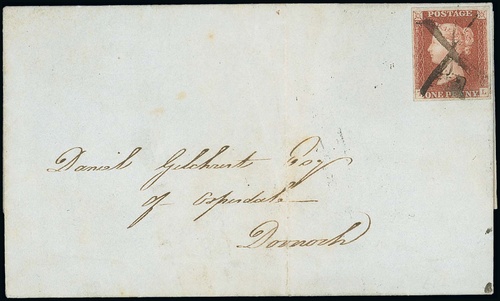 POSTAGE
ONE PENNY
L
Daniel Gilchrist Esq
of Ospisdale
Dornoch